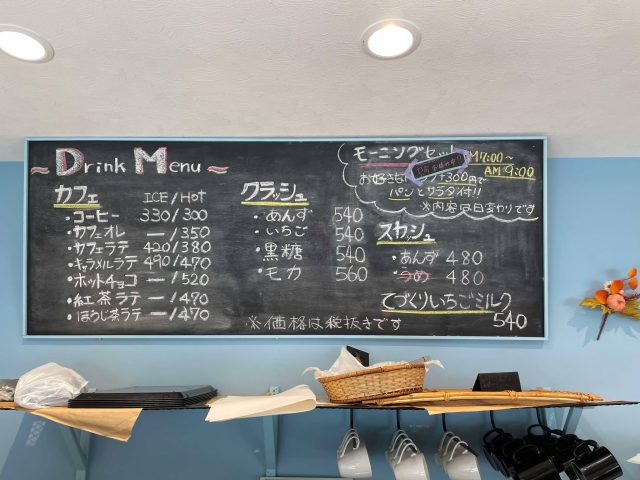 ~Drink Menu~
カフェ ICE/HOT
・コーヒー 330/300
・カフェオレ ー/350
・カフェラテ 420/380
・キャラメルラテ 490/470
・ホットチョコ ー/520
・紅茶ラテ ー/470
・ほうじ茶ラテ ー/470
クラッシュ
・あんず 540
・いちご 540
・黒糖 540
・モカ 560
モーニングセット AM7:00~
AM9:00
お好きな +300円で
パンとサラダ付!!
※内容は日変わりです
スカッシュ
・あんず 480
・うめ 480
てづくりいちごミルク
540
※価格は税抜きです